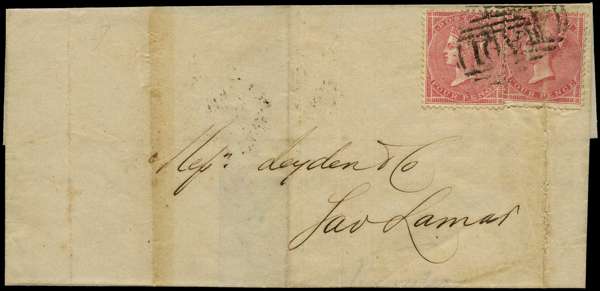 POSTAGE
FOUR PENCE FOUR PENCE
A01
Messrs. Leyden & Co
Sav Lamar